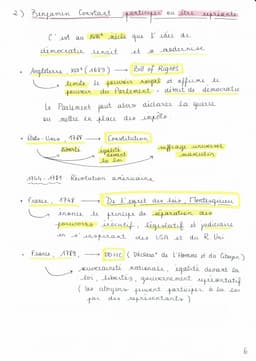 2) Benjamin Constant participer ou être représenté
C'est au XVIIIe siècle que l'idée de
démocratie renaît et se modernise
• Angleterre, (1689) → Bill of Rights
→ limite le pouvoir royal et affirme le
pouvoir du Parlement - début de démocratie
Le Parlement peut alors déclarer la guerre
ou mettre en place des impôts
• États-Unis, 1788 → Constitution
liberté égalité devant la loi suffrage universel masculin
Révolution américaine
• France, 1748 → De l'esprit des lois, Montesquieu
→ énonce le principe de séparation des
pouvoirs exécutif, législatif et judiciaire
en s'inspirant des USA et du R. Uni
• France, 1789, → DDHC (Déclarat° de l'Homme et du Citoyen)
→ souveraineté nationale, égalité devant la
loi, libertés, gouvernement représentatif
(les citoyens peuvent participer à la loi
par des représentants)
6